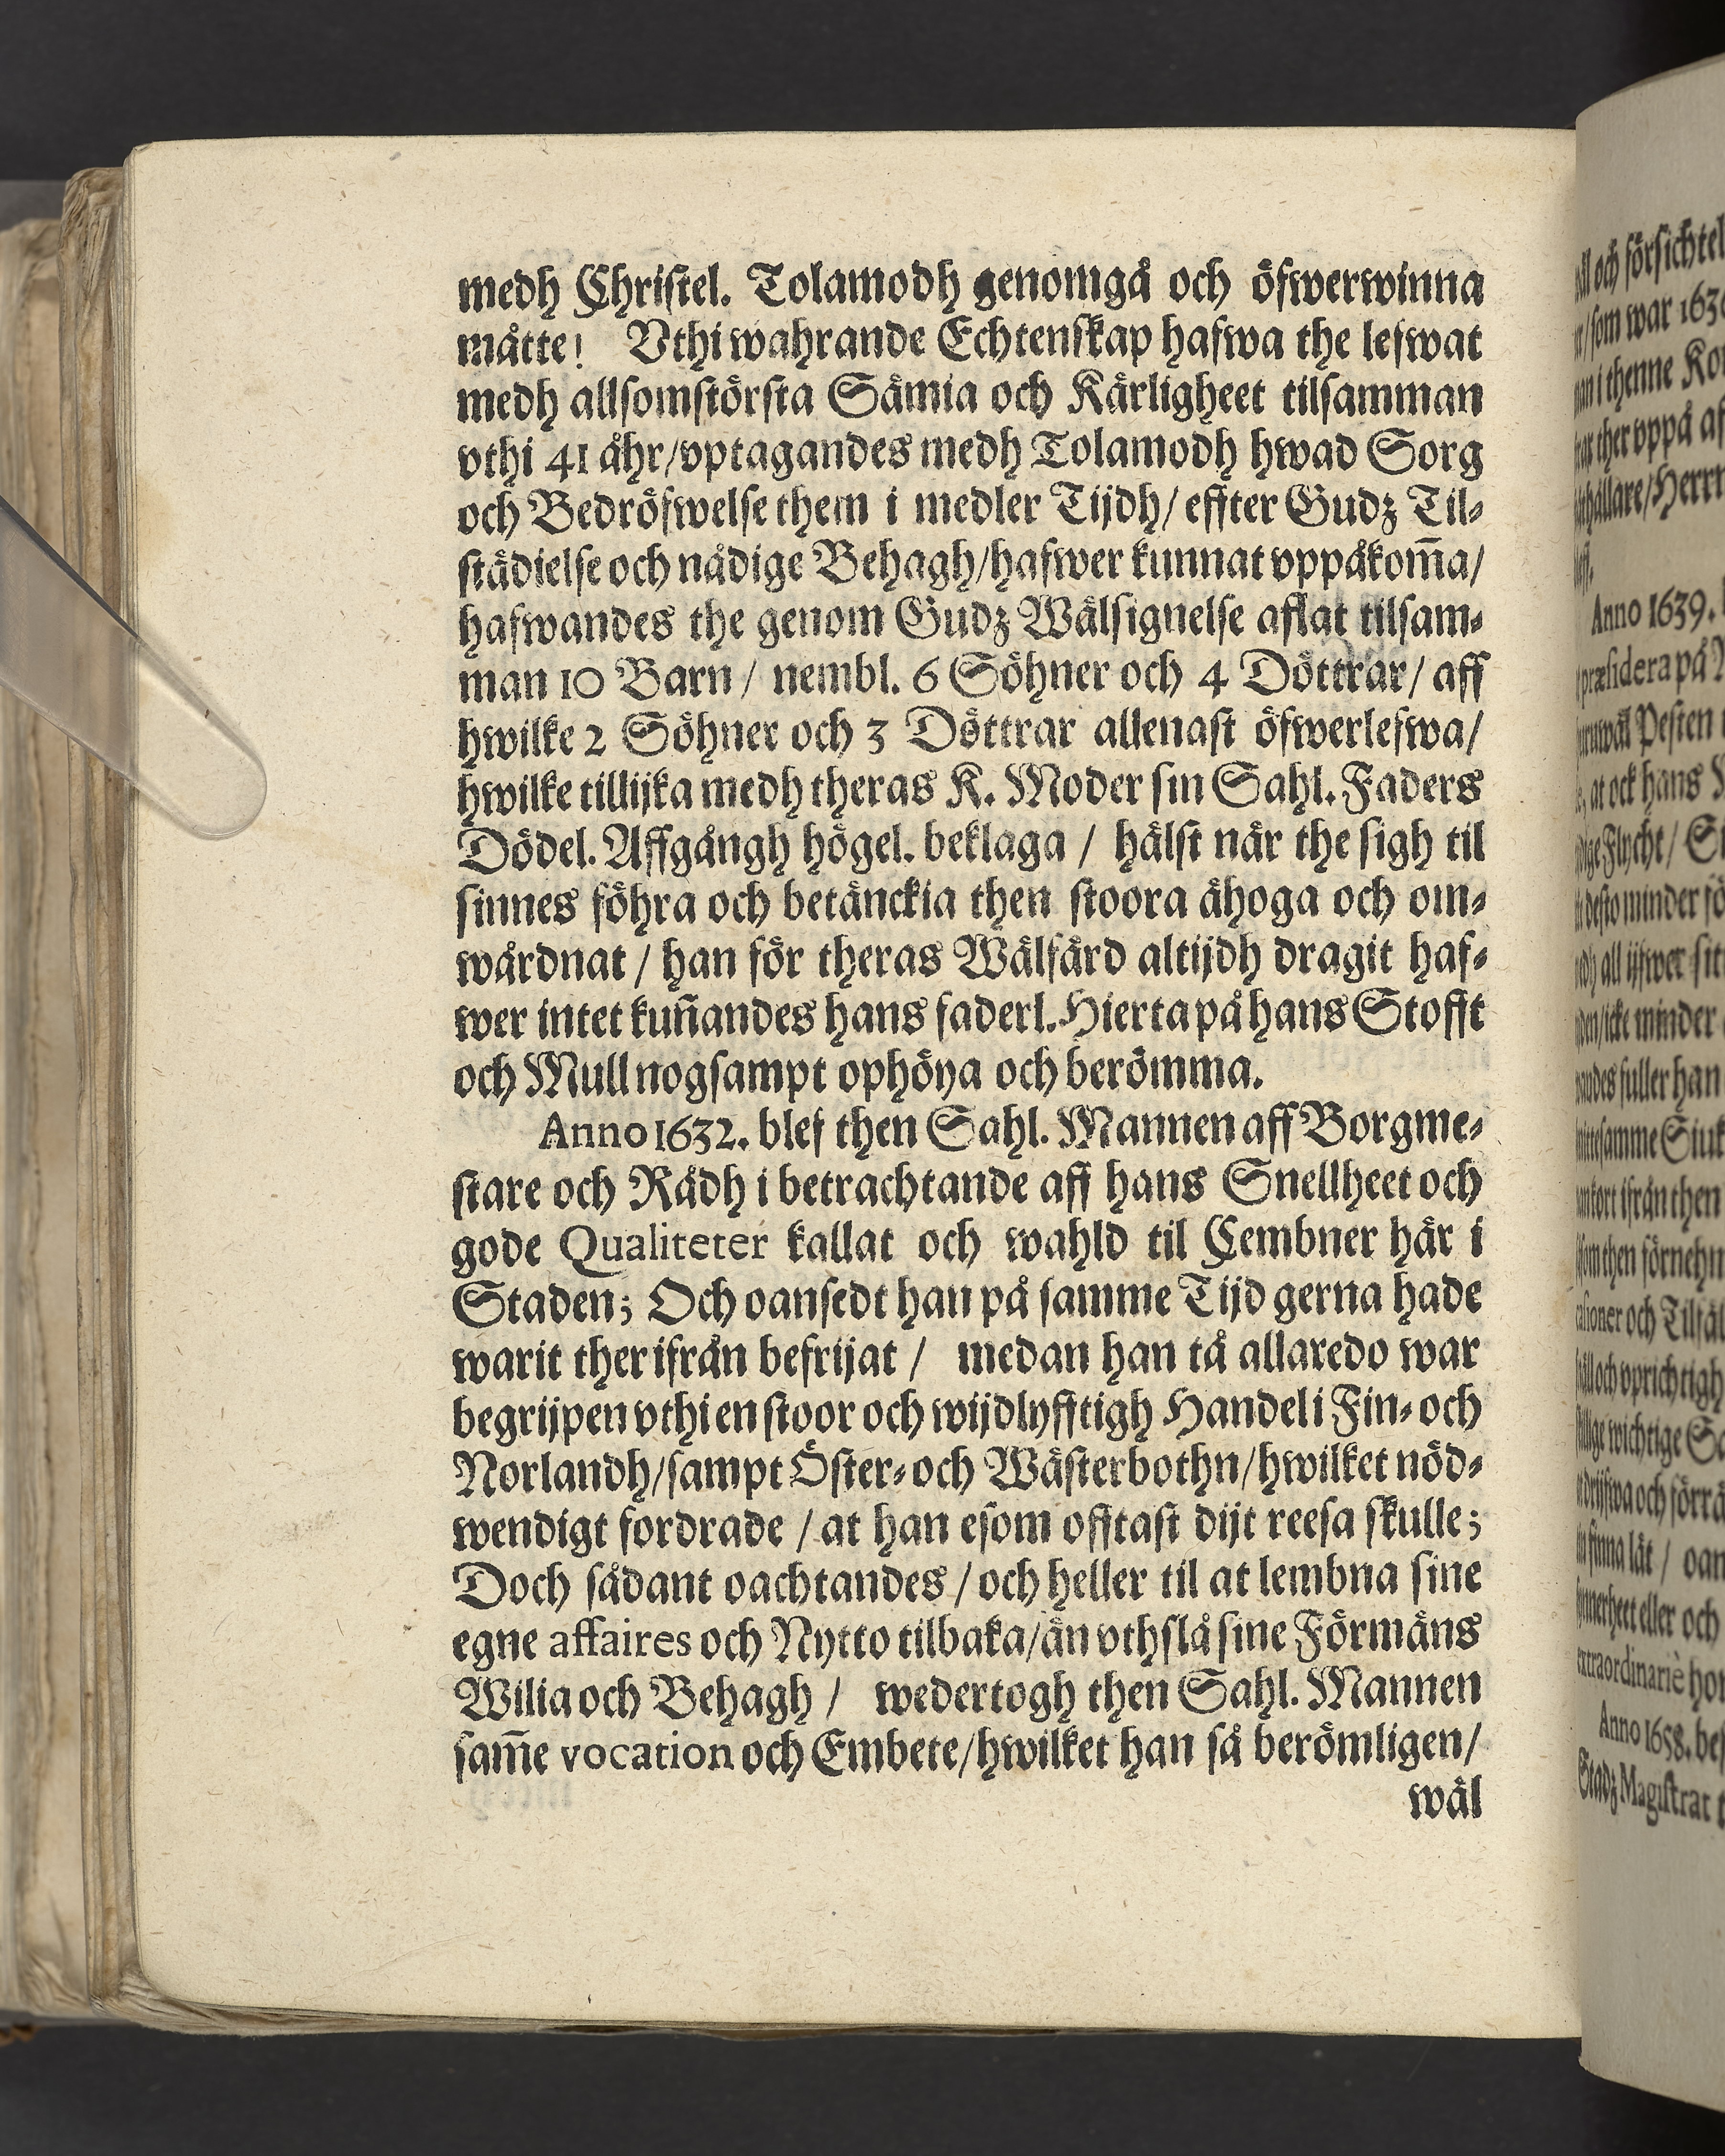 medh Christel. Tolamodh genomgå och öfwerwinna
måtte! Vthi wahrande Echtenskap hafwa the lefwat
medh allsomstörsta Sämia och Kärligheet tilsamman
vthi 41 åhr/vptagandes medh Tolamodh hwad Sorg
och Bedröfwelse them i medler Tijdh/ effter Gudz Til-
städielse och nådige Behagh/hafwer kunnat vppåkom̅a/
hafwandes the genom Gudz Wälsignelse aflat tilsam-
man 10 Barn / nembl. 6 Söhner och 4 Döttrar/ aff
hwilke 2 Söhner och 3 Döttrar allenast öfwerlefwa/
hwilke tillijka medh theras K. Moder sin Sahl. Faders
Dödel. Affgångh högel. beklaga / hälst när the sigh til
sinnes föhra och betänckia then stoora åhoga och om-
wårdnat / han för theras Wälfärd altijdh dragit haf-
wer intet kun̅andes hans faderl. Hierta på hans Stofft
och Mull nogsampt ophöya och berömma.
Anno 1632. blef then Sahl. Mannen aff Borgme-
stare och Rådh i betrachtande aff hans Snellheet och
gode Qualiteter kallat och wahld til Cembner här i
Staden; Och oansedt han på samme Tijd gerna hade
warit ther ifrån befrijat / medan han tå allaredo war
begrijpen vthi en stoor och wijdlyfftigh Handel i Fin- och
Norlandh/sampt Öster- och Wästerbothn/hwilket nöd-
wendigt fordrade / at han esom offtast dijt reesa skulle;
Doch sådant oachtandes / och heller til at lembna sine
egne affaires och Nytto tilbaka/än vthslå sine Förmäns
Wilia och Behagh / wedertogh then Sahl. Mannen
sam̅e vocation och Embete/hwilket han så berömligen/
wäl
och försichtel
som war
i thenne
ther vppå
Herr
Anno 1639.
præsidera på
Pesten
at ock hans
Flycht /
desto minder
all ijfwer
icke minder
fuller han
samme
ifrån then
then förnehm
och
och vprichtigh
wichtige
och
finna låt /
eller och
extraordinariè
Anno 1658.
Stadz Magistrat